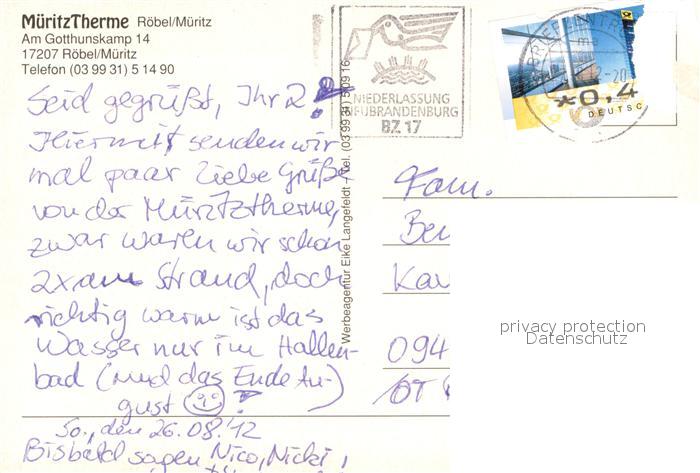 MüritzTherme Röbel/Müritz
Am Gotthunskamp 14
17207 Röbel/Müritz
Telefon (03 99 31) 5 14 90
Seid gegrüßt, Ihr 2!
Hiermit senden wir
mal paar liebe Grüße
von der Müritztherme,
zwar waren wir schon
2x am Strand, doch
richtig warm ist das
Wasser nur im Hallen-
bad (und das Ende Au-
gust ?
So., den 26.08.12
Bisbald sagen Nico, Nicki,
Werbeagentur Eike Langefeldt - Tel. (03 99 31) 5 09 16
NIEDERLASSUNG
NEUBRANDENBURG
BZ 17
BRIEFZENTRUM
*0,4
DEUTSC
Fam.
Ber
Kau
094
OT
privacy protection
Datenschutz